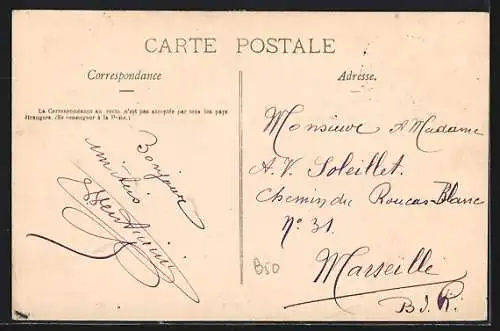 CARTE POSTALE
Correspondance
Adresse.
La Correspondance au recto n'est pas acceptée par tous les pays
étrangers. (Se renseigner à la Poste.)
Bonjour
amitiés
Monsieur & Madame
A. V. Soleillet.
Chemin du Roucas-Blanc
N° 31.
Marseille
B. d. R.
B50